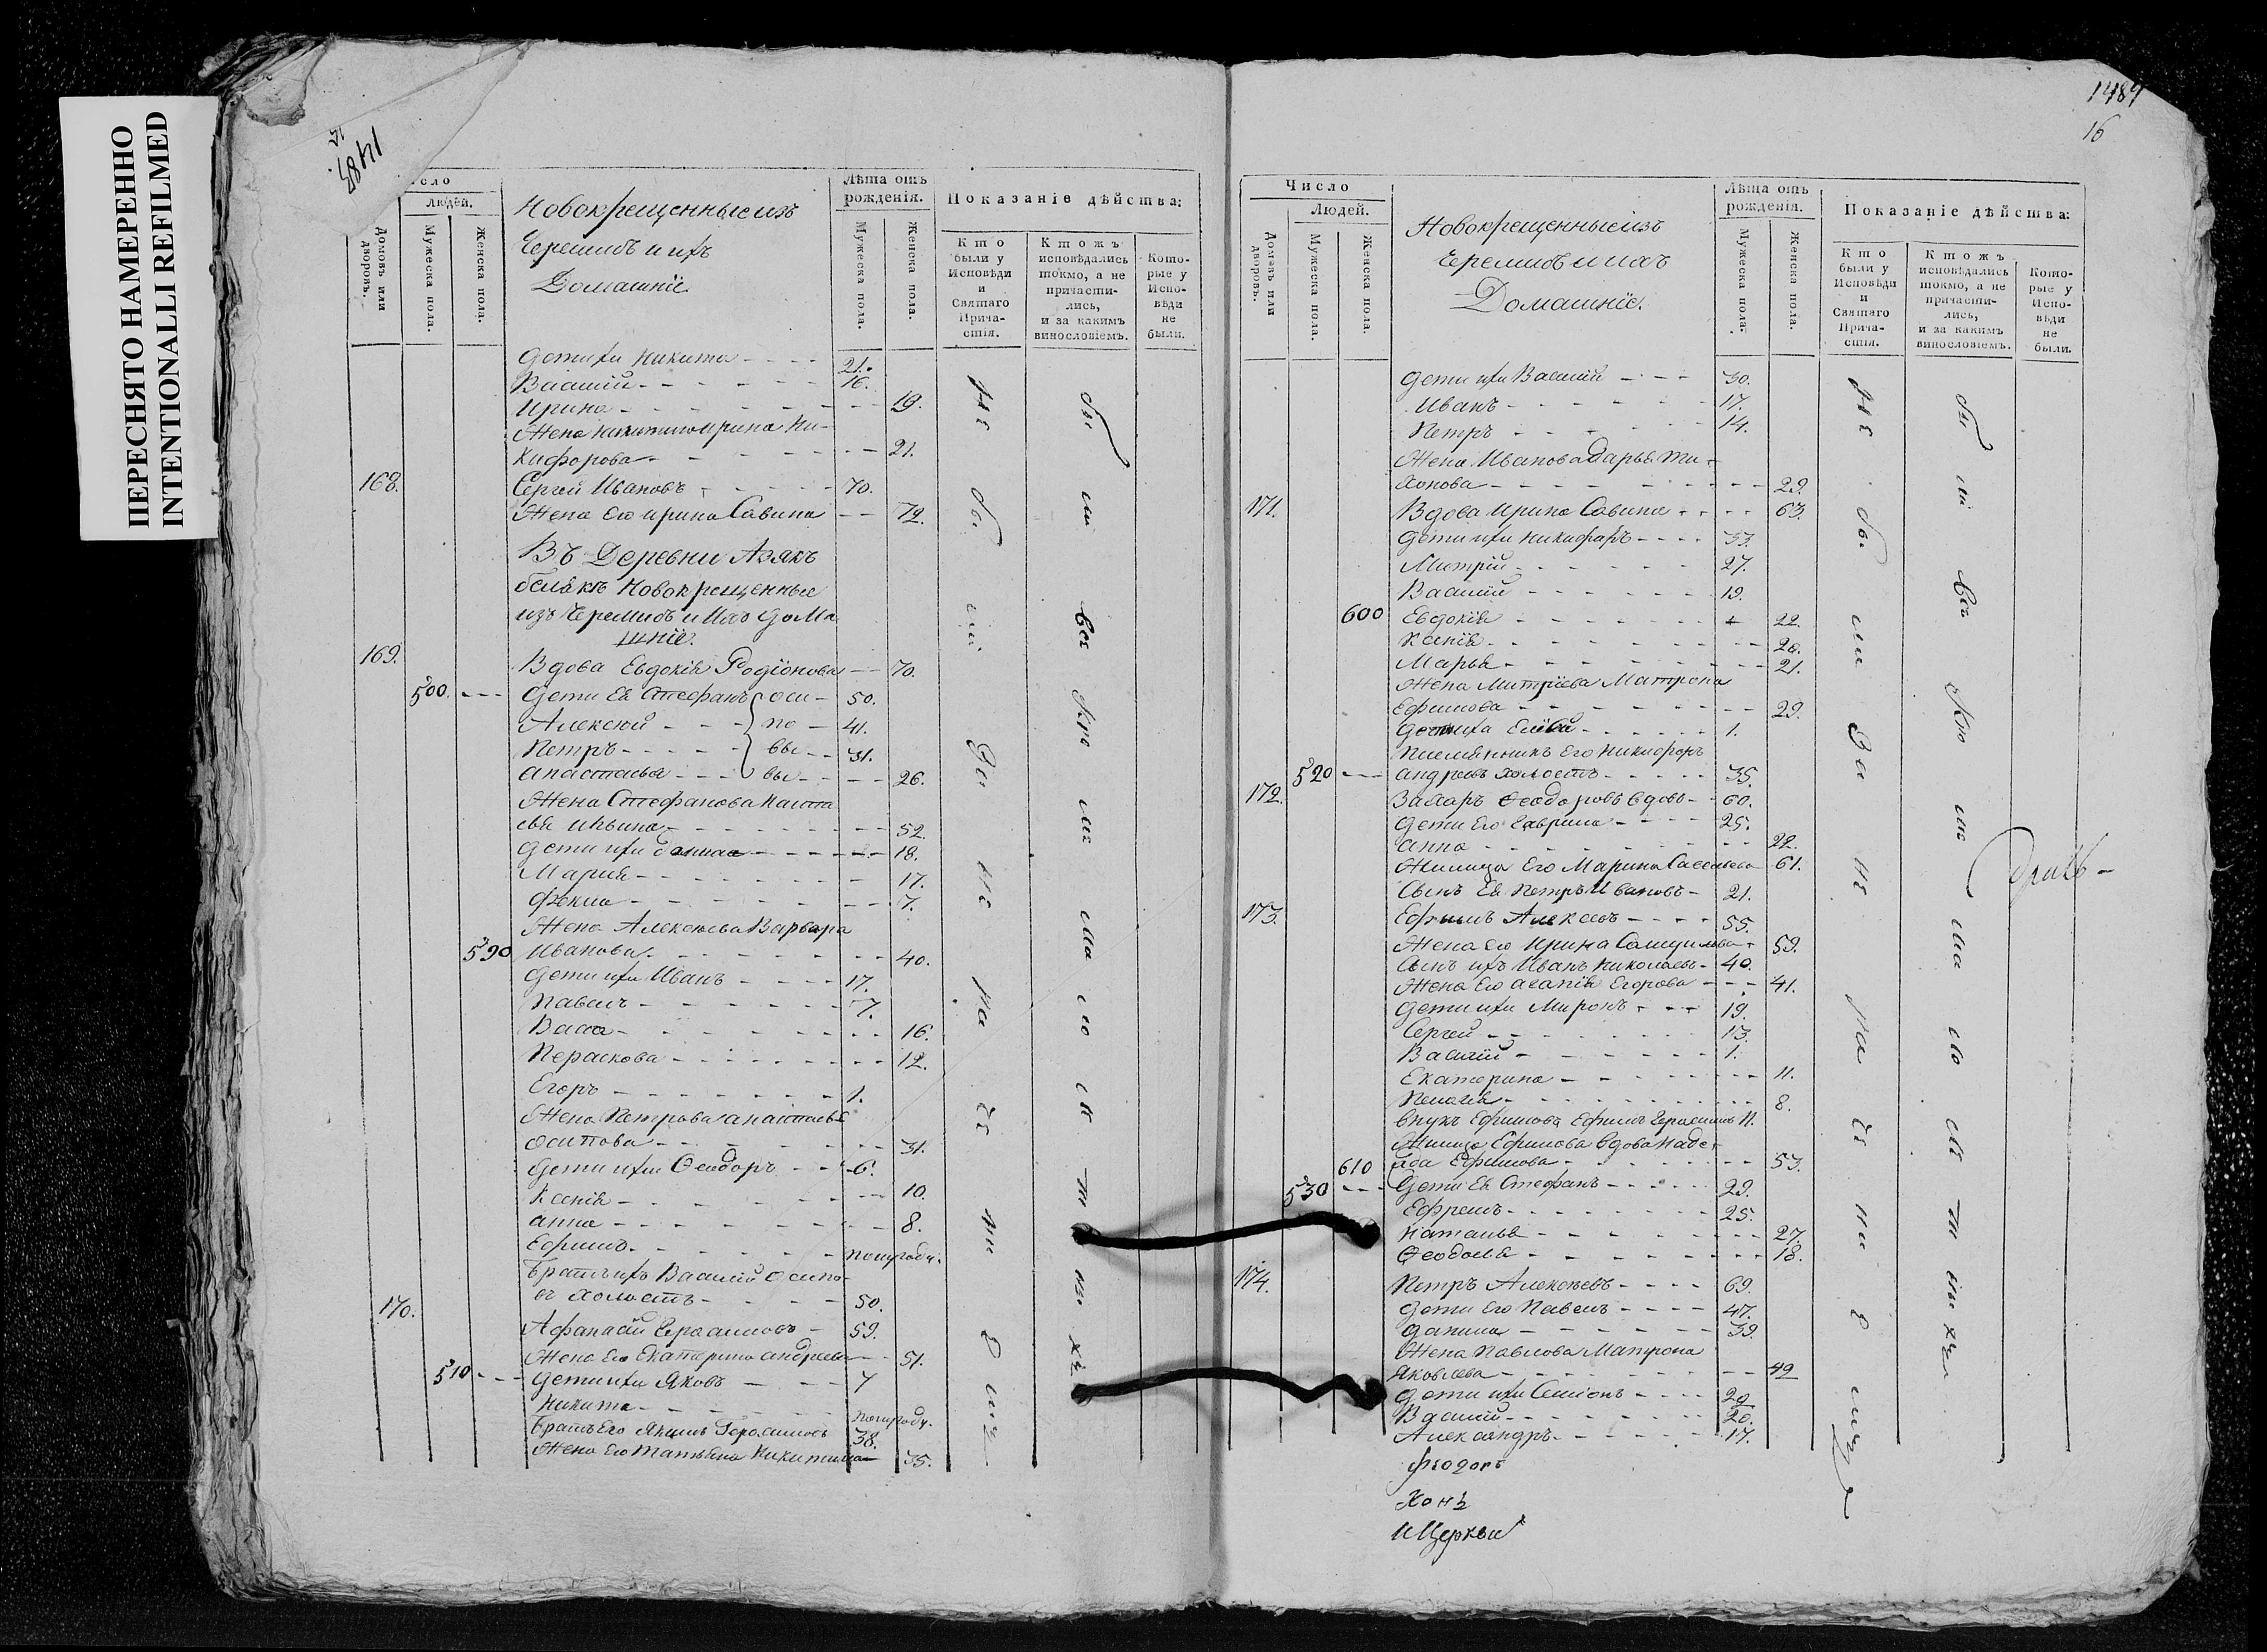 ПЕРЕСНЯТО НАМЕРЕННО
INTENTIONALLI REFILMED
1487.
Людей.
Домовъ или дворовъ.
Мужеска пола.
Женска пола.
Новокрещенные изъ
Черемисъ и ихъ
Домашнiе.
Лѣта отъ рожденiя.
Мужеска пола.
Женска пола.
Показанiе дѣйства:
Кто были у Исповѣди и Святаго Причастiя.
Ктожъ исповѣдались токмо, а не причастились, и за какимъ винословiемъ.
Которые у Исповѣди не были.
Дети ихъ Никита 21.
Василий 16.
Ирина 19.
Жена Никитина Ирина Ни-
кифорова 21.
168. Сергей Ивановъ 70.
Жена Его Ирина Савина 72.
Въ Деревни Азякъ
белякъ Новокрещенные
изъ Черемисъ и Ихъ дома
шнiе.
169. Вдова Евдокiя Родiонова 70.
500. Дети Ея Стефанъ оси 50.
Алексей по 41.
Петръ вы 31.
Анастасья вы 26.
Жена Стефанова Наста
сья Ильина 52.
Дети ихъ 18.
Мария 17.
Фекла 7.
Жена Алексеева Варвара
590 Иванова 40.
Дети ихъ Иванъ 17.
Павелъ 7.
Васса 16.
Пераскова 12.
Егоръ 1.
Жена Петрова Анастасья
Осипова 31.
Дети ихъ Феодоръ 6.
Ксенiя 10.
Анна 8.
Ефимъ полугоду.
Братъ ихъ Василий Осипо-
въ холостъ 50.
170. Афанасiй Герасимовъ 59.
Жена Его Екатерина Андреева 51.
510 Дети ихъ Яковъ 7
Никита полугоду.
Братъ Его Якимъ Герасимовъ 38.
Жена Его Татьяна Никитина 35.
1489
16
Число
Людей.
Домовъ или дворовъ.
Мужеска пола.
Женска пола.
Новокрещенные изъ
Черемисъ и ихъ
Домашнiе.
Лѣта отъ рожденiя.
Мужеска пола.
Женска пола.
Показанiе дѣйства:
Кто были у Исповѣди и Святаго Причастiя.
Ктожъ исповѣдались токмо, а не причастились, и за какимъ винословiемъ.
Которые у Исповѣди не были.
Дети ихъ Василий 30.
Иванъ 17.
Петръ 14.
Жена Иванова Дарья Ти-
хонова 29.
171. Вдова Ирина Савина 63.
Дети ихъ Никифаръ 33.
Митрiй 27.
Василий 19.
600 Евдокiя 22.
Ксенiя 20.
Марья 21.
Жена Митрiева Матрона
Ефимова 29.
Дети ихъ 1.
Племянникъ Его Никифоръ
520 Андреевъ холостъ 35.
172. Захаръ Феодоровъ вдовъ 60.
Дети Его Гаврила 25.
Анна 22.
Его Марина Савельева 61.
Сынъ Ея Петръ Ивановъ 21.
173. Ефимъ Алексеевъ 55.
Жена Его Ирина Самуилова 59.
Сынъ ихъ Иванъ Николаевъ 40.
Жена Его Агапiя Егорова 41.
Дети ихъ Миронъ 19.
Сергей 13.
Василий 1.
Екатерина 11.
Пелагея 8.
Внукъ Ефимовъ Ефимъ Герасимовъ
Ефимова вдова Наде-
610 жда Ефимова 53.
530 Дети Ея Стефанъ 29.
Ефремъ 25.
Наталья 27.
Феодосья 18.
174. Петръ Алексеевъ 69.
Дети Его Павелъ 47.
Данила 39.
Жена Павлова Матрона
Яковлева 49
Дети ихъ Семiонъ 29
Василий 20.
Александръ 17.
Фiодоръ
Хонъ
и Церкви